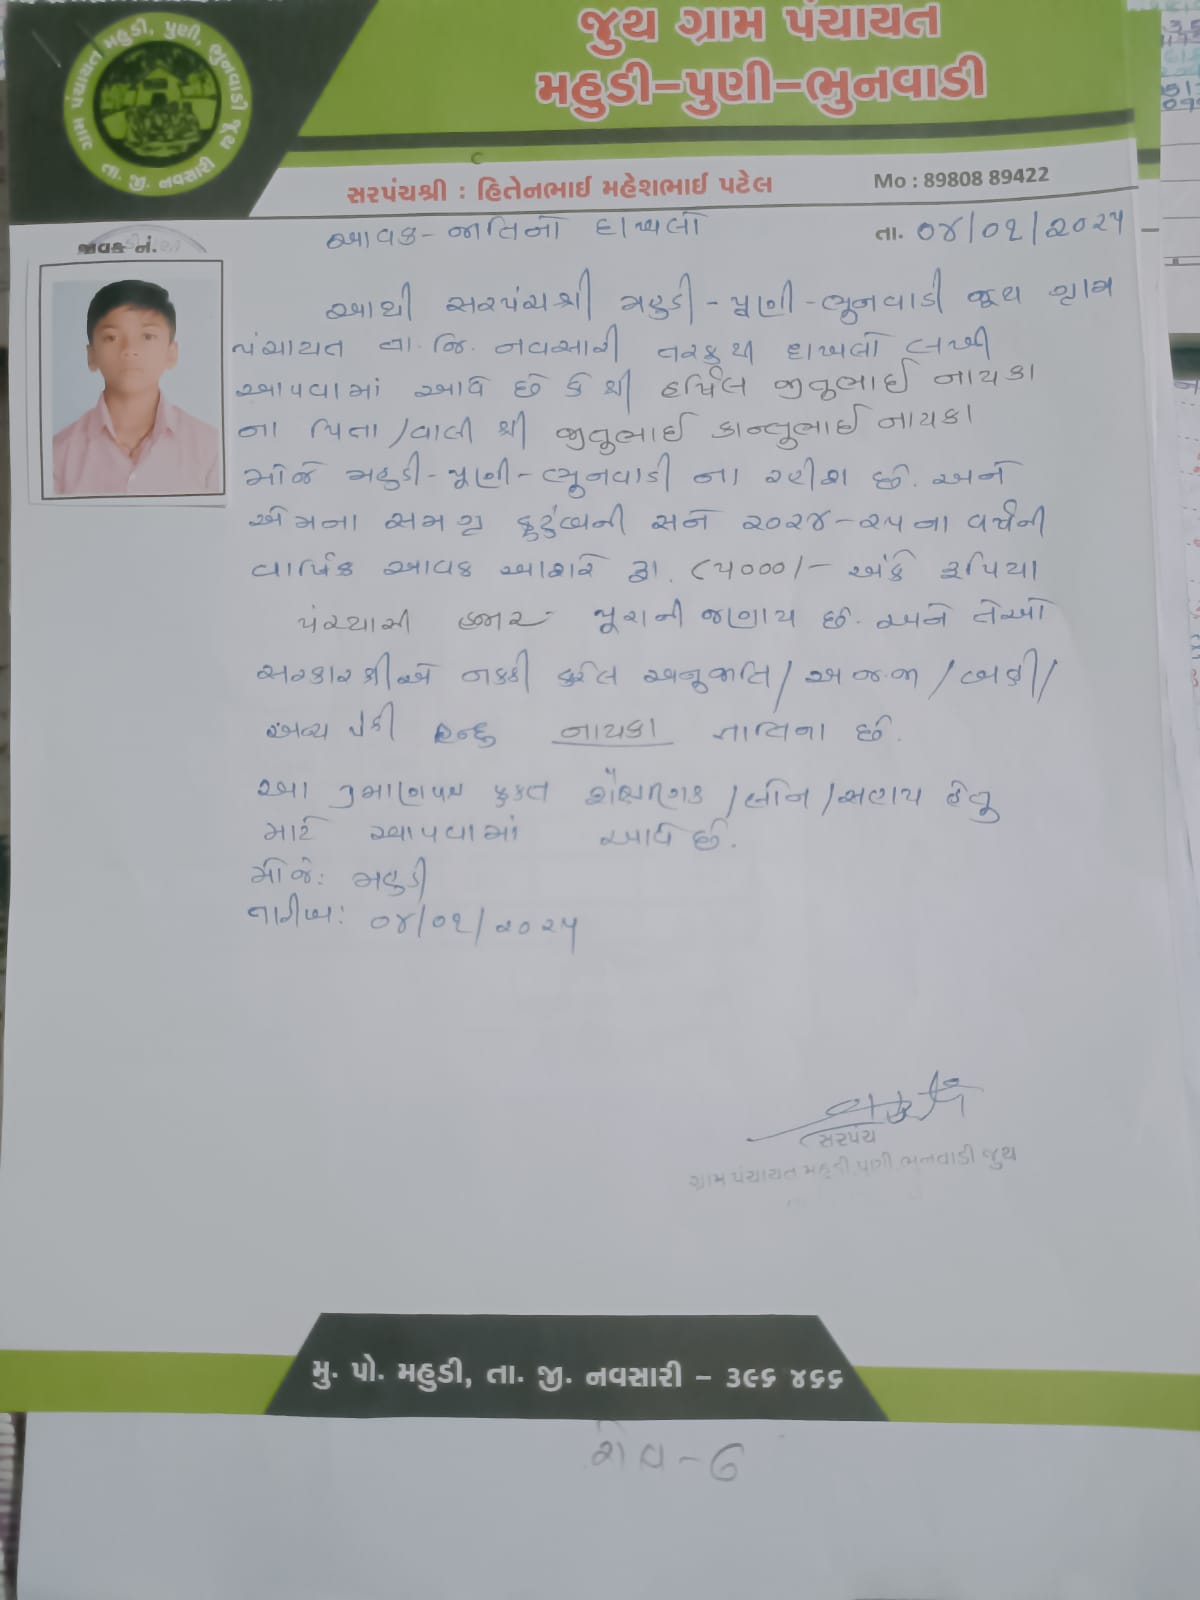 જુથ ગ્રામ પંચાયત
મહુડી-પુણી-ભુનવાડી
ગ્રામ પંચાયત મહુડી, પુણી, ભુનવાડી જુથ
તા. જી. નવસારી
સરપંચશ્રી : હિતેનભાઈ મહેશભાઈ પટેલ
Mo : 89808 89422
જાવક નં.
આવક-જાતિનો દાખલો
તા. ૦૪/૦૧/૨૦૨૫
આથી સરપંચશ્રી મહુડી-પૂણી-ભુનવાડી જૂથ ગ્રામ
પંચાયત તા.જિ. નવસારી તરફથી દાખલો લખી
આપવામાં આવે છે કે શ્રી હર્પિલ જીતુભાઈ નાયકા
ના પિતા/વાલી શ્રી જીતુભાઈ કાન્તુભાઈ નાયકા
મોજે મહુડી-પૂણી-ભુનવાડી ના રહીશ છે. અને
એમના સમગ્ર કુટુંબની સને ૨૦૨૪-૨૫ના વર્ષની
વાર્ષિક આવક આશરે રૂા. ૮૫૦૦૦/- અંકે રૂપિયા
પંચ્યાસી હજાર પૂરાની જણાય છે. અને તેઓ
સરકારશ્રીએ નક્કી કરેલ અનુજાતિ/અ.જ.જા/બક્ષી/
અન્ય પૈકી હિન્દુ નાયકા જાતિના છે.
આ પ્રમાણપત્ર ફક્ત શૈક્ષણિક/લોન/સહાય હેતુ
માટે આપવામાં આવે છે.
મોજે: મહુડી
તારીખ: ૦૪/૦૧/૨૦૨૫
સરપંચ
ગ્રામ પંચાયત મહુડી,પુણી,ભુનવાડી જુથ
મુ. પો. મહુડી, તા. જી. નવસારી – ૩૯૬ ૪૬૬